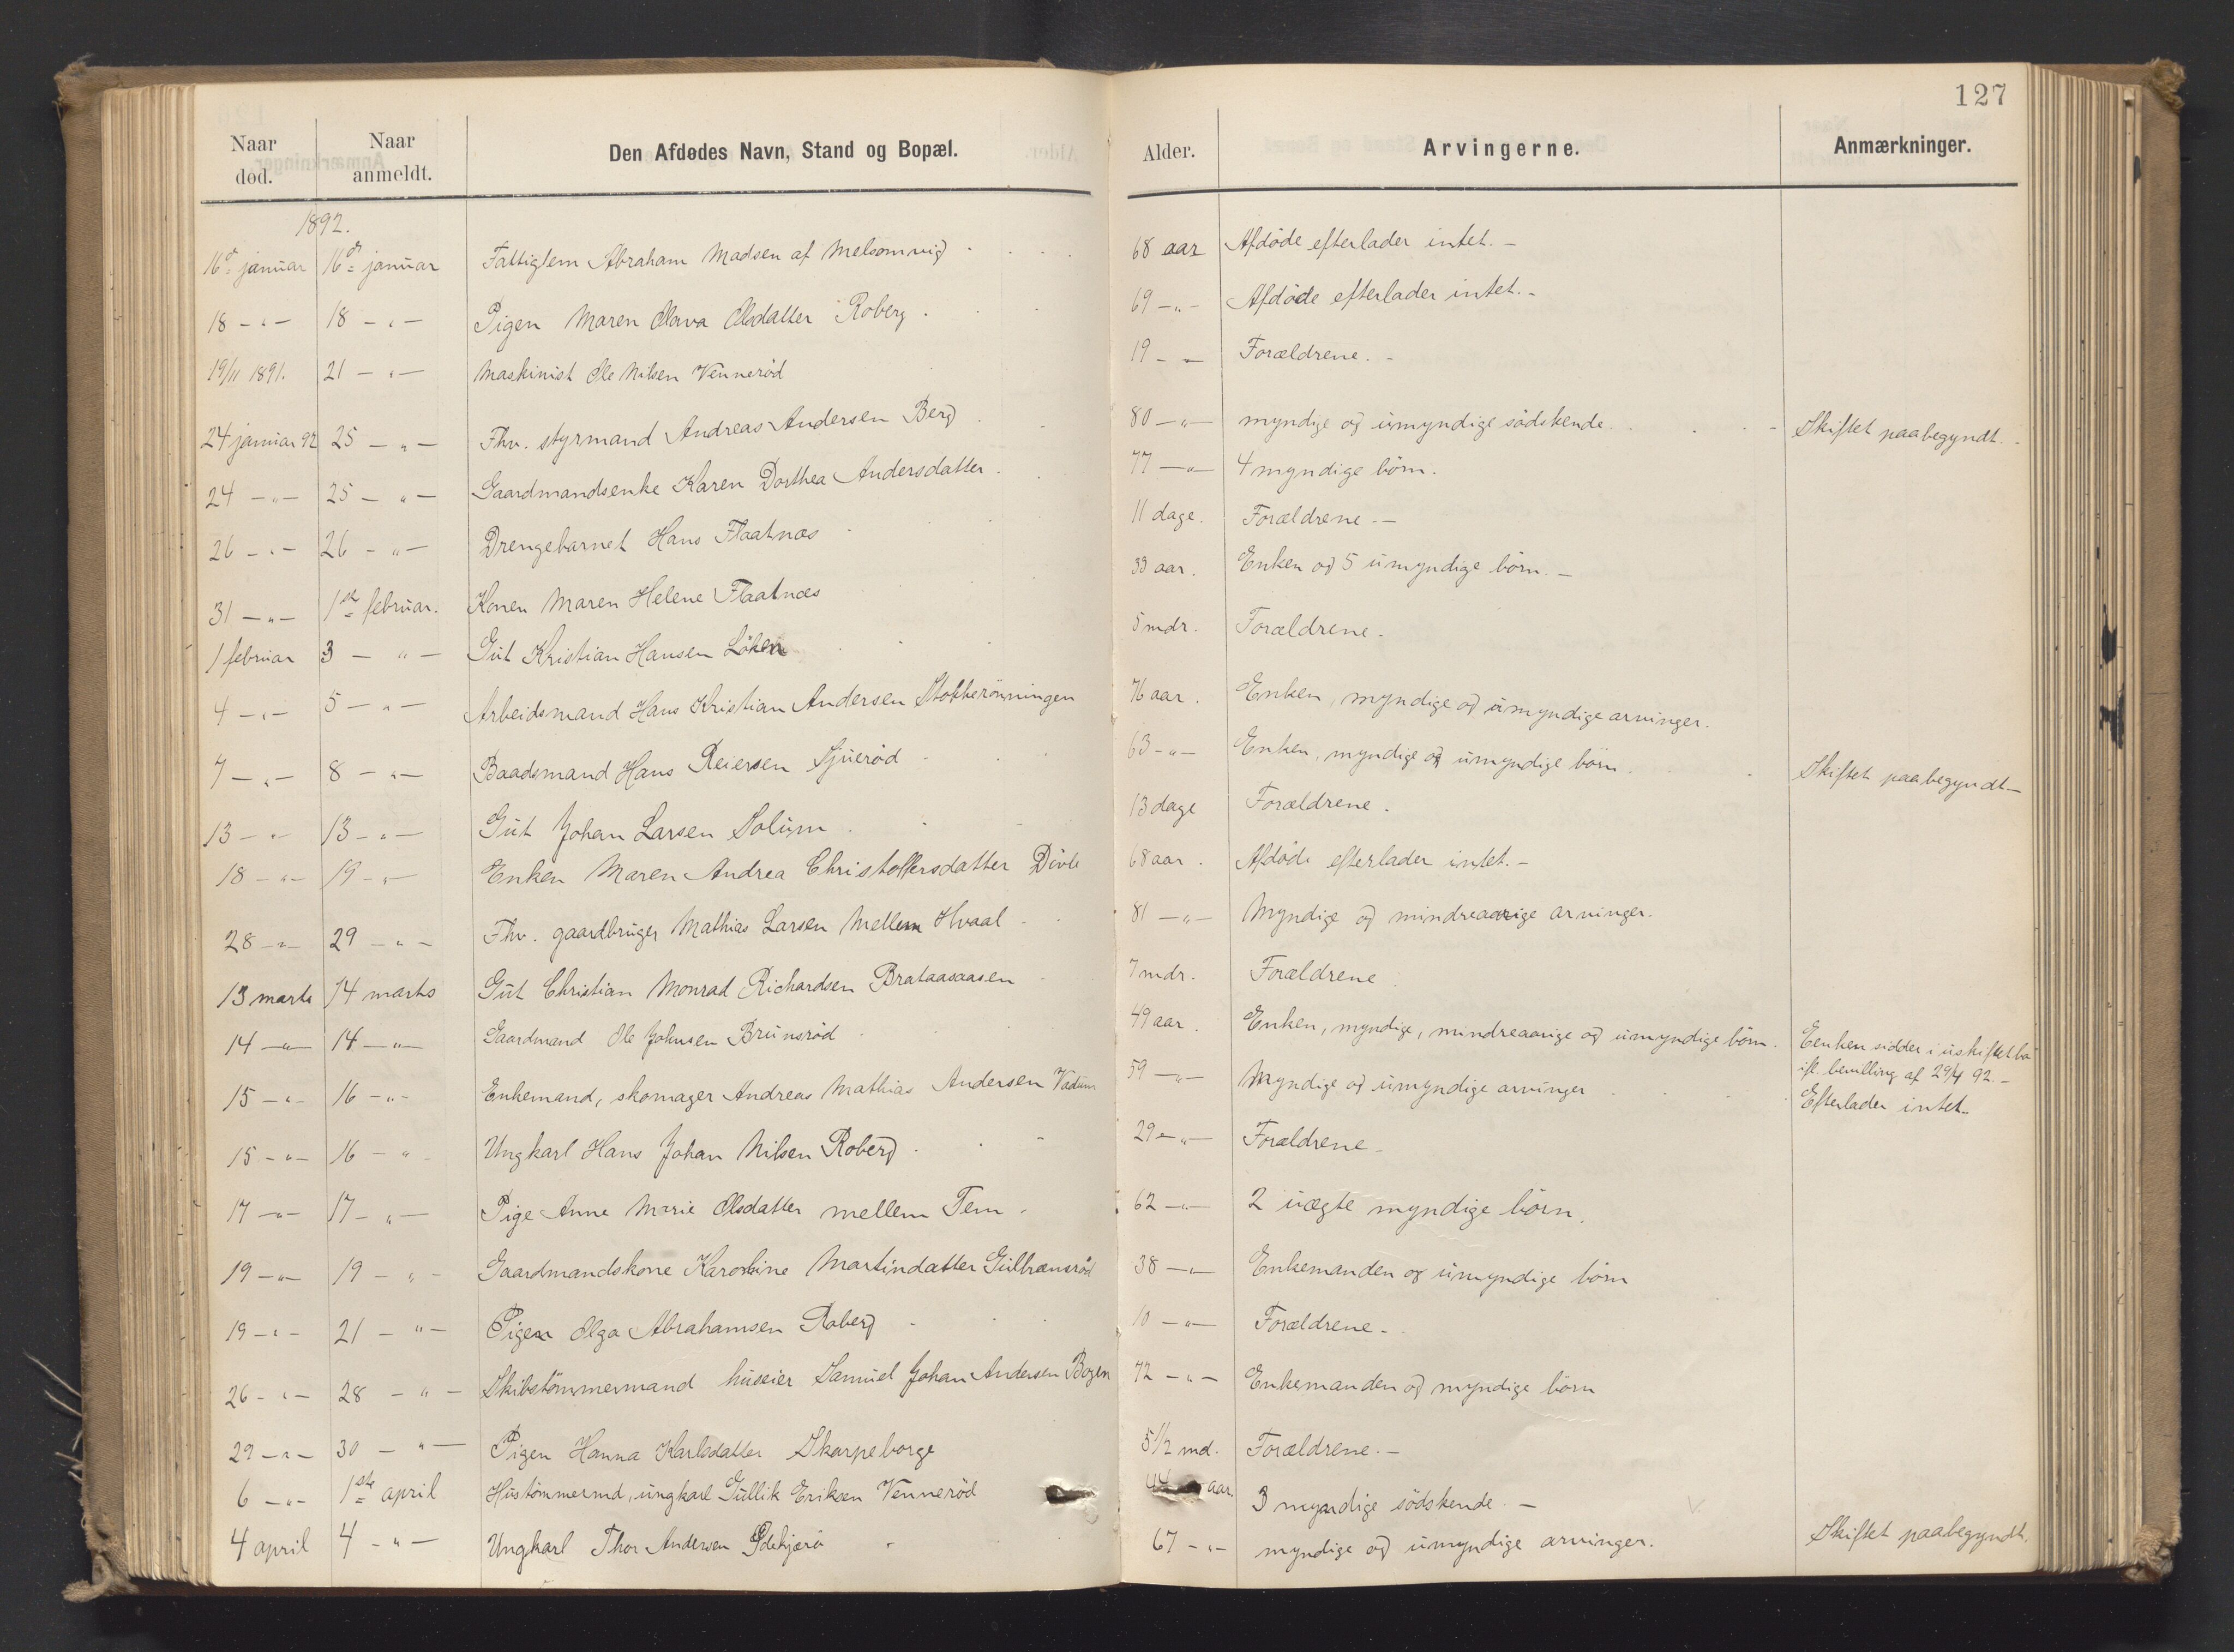 127
Naar død. Naar anmeldt. Den Afdødes Navn, Stand og Bopæl. Alder. Arvingerne. Anmærkninger.
1892.
16de januar 16de januar Fattiglem Abraham Madsen af Melsomvig 68 aar Afdöde efterlader intet. –
18 – " – 18 – " – Pigen Maren Olava Olsdatter Roberg. 69 – " – Afdöde efterlader intet. –
19/11 1891. 21 – " – Maskinist Ole Nilsen Venneröd 19 – " – Forældrene. –
24 januar 92 25 – " – Fhv. styrmand Andreas Andersen Berg 80 – " – myndige og umyndige södskende. Skiftet paabegyndt. –
24 – " – 25 – " – Gaardmandsenke Karen Dorthea Andersdatter. 77 – " – 4 myndige börn.
26 – " – 26 – " – Drengebarnet Hans Flaatnæs 11 dage. Forældrene. –
31 – " – 1ste februar. Konen Maren Helene Flaatnæs 33 aar. Enken og 5 umyndige börn. –
1 februar 3 – " – Gut Kristian Hansen Löken 5 mdr. Forældrene.
4 – " – 5 – " – Arbeidsmand Hans Kristian Andersen Stokkerönningen 76 aar. Enken, myndige og umyndige arvinger.
7 – " – 8 – " – Baadsmand Hans Reiersen Sjueröd 63 – " – Enken, myndige og umyndige börn. Skiftet paabegyndt –
13 – " – 13 – " – Gut Johan Larsen Solum 13 dage Forældrene.
18 – " – 19 – " – Enken Maren Andrea Christoffersdatter Dövle 68 aar. Afdöde efterlader intet. –
28 – " – 29 – " – Fhv. gaardbruger Mathias Larsen Mellem Hvaal 81 – " – Myndige og mindreaarige arvinger.
13 marts 14 marts Gut Christian Monrad Richardsen Brataasaasen 7 mdr. Forældrene
14 – " – 14 – " – Gaardmand Ole Johnsen Brunsröd 49 aar. Enken, myndige, mindreaarige og umyndige börn. Eenken sidder i uskiftet bo
ifl. bevilling af 29/4 92. –
15 – " – 16 – " – Enkemand, skomager Andreas Mathias Andersen Vadum 59 – " – Myndige og umyndige arvinger Efterlader intet.
15 – " – 16 – " – Ungkarl Hans Johan Nilsen Roberg. 29 – " – Forældrene –
17 – " – 17 – " – Pige Anne Marie Olsdatter mellem Tem. 62 – " – 2 uægte myndige börn.
19 – " – 19 – " – Gaardmandskone Karoline Martindatter Gulbransröd 38 – " – Enkemanden og umyndige börn
19 – " – 21 – " – Pigen Olga Abrahamsen Roberg 10 – " – Forældrene –
26 – " – 28 – " – Skibstömmermand huseier Samuel Johan Andersen Bogen 72 – " – Enkemanden og myndige börn
29 – " – 30 – " – Pigen Hanna Karlsdatter Skarpeborge 5 1/2 md. Forældrene. –
6 – " – 1ste april Hustömmermd, ungkarl Gullik Eriksen Venneröd 44 aar. 3 myndige södskende. –
4 april 4 – " – Ungkarl Thor Andersen 67 – " – myndige og umyndige arvinger. Skiftet paabegyndt.